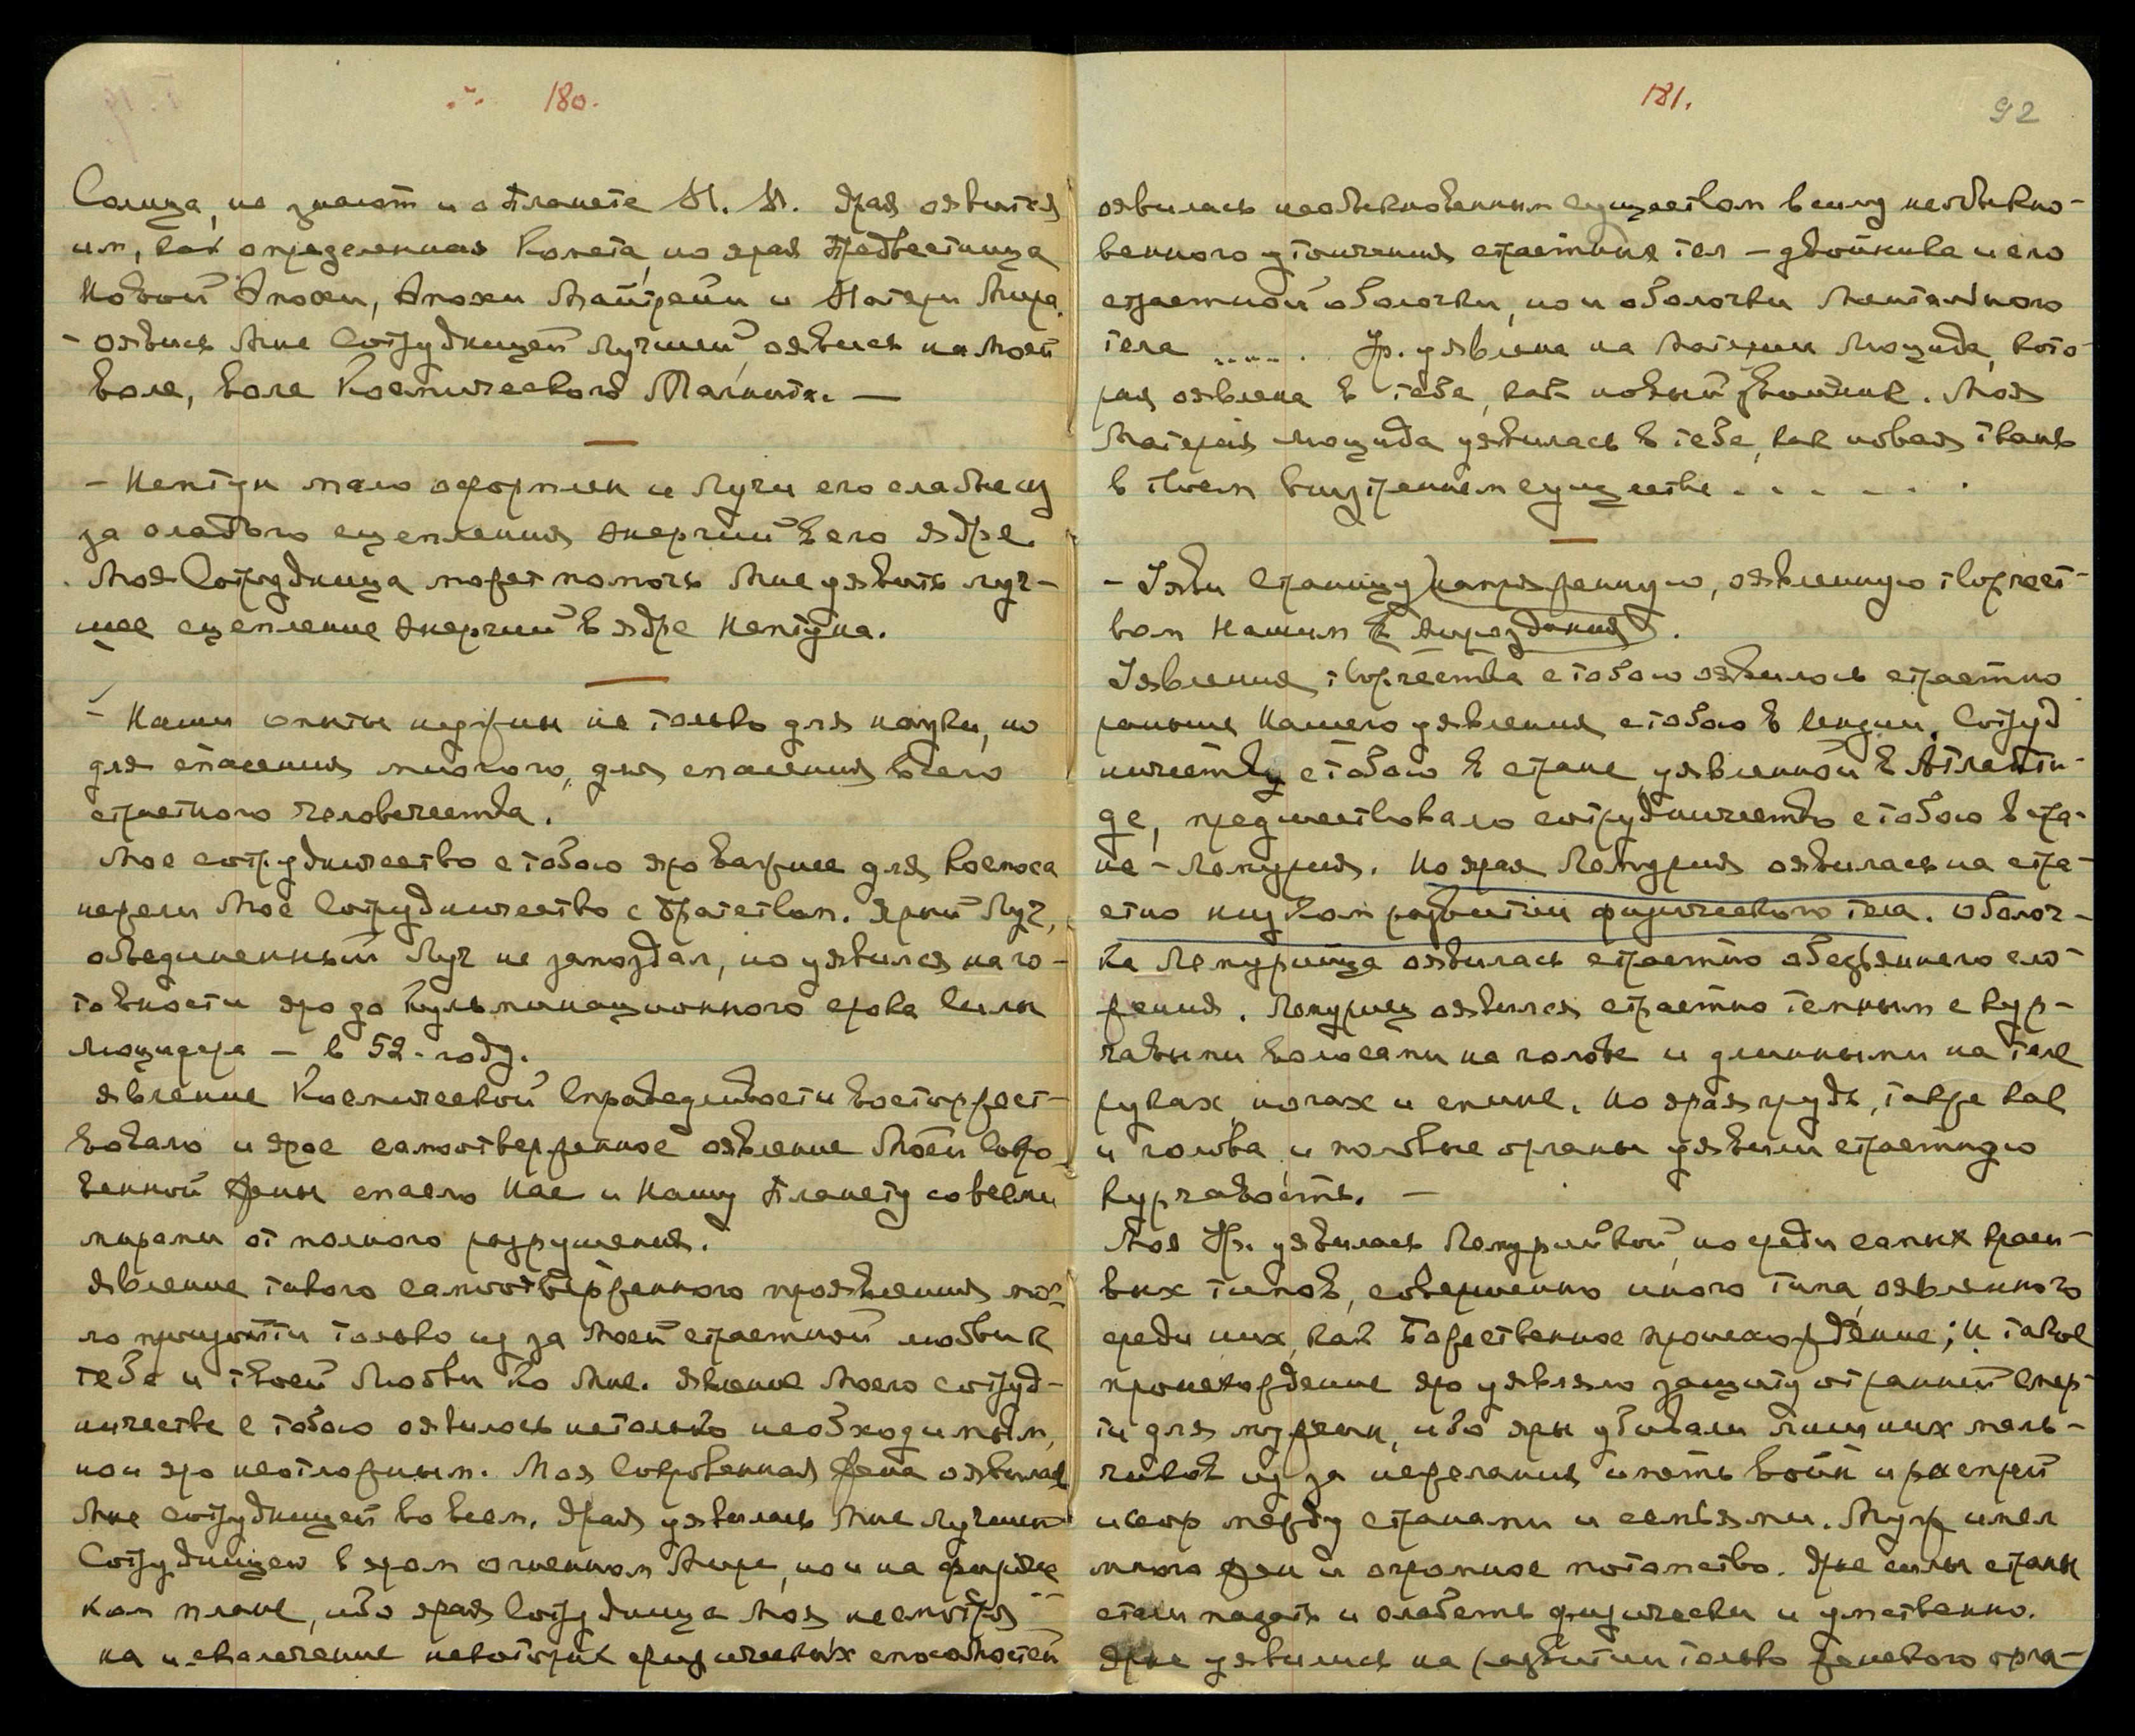 180.
Солнца, не знают и о Планете М. М. Ярая оявится
им, как определенная Комета, но ярая Предвестница
Новой Эпохи, Эпохи Майтрейи и Матери Мира.
– оявись Мне Сотрудницей Лучшей, оявись на Моей
Воле, Воле Космического Магнита. —
– Нептун мало оформлен и Лучи его слабые из
за слабого сцепления энергий в его ядре.
Моя Сотрудница может помочь Мне уявить луч-
шее сцепление энергий в ядре Нептуна.
– Наши опыты нужны не только для науки, но
для спасения многого, для спасения всего
страстного человечества.
Мое сотрудничество с тобою яро важнее для Космоса
нежели Мое Сотрудничество с Братством. Ярый Луч,
объединенный Луч не запоздал, но уявился на го-
товности яро до Кульминационного срока Силы
Люцифера – в 52-году.
Явление Космической Справедливости Восторжест-
вовало и ярое самоотверженное оявление Моей Сокро-
венной Жены спасло Нас и Нашу Планету со всеми
мирами от полного разрушения.
Явление такого самоотверженного проявления мог-
ло произойти только из за Моей страстной любви к
тебе и твоей Любви ко Мне. Явление Моего сотруд-
ничества с тобою оявилось не только необходимым,
но и яро неотложным. Моя Сокровенная Жена оявилась
Мне сотрудницей во всем. Ярая уявилась Мне Лучшей
Сотрудницею в яром огненном Мире, но и на физичес
ком плане, ибо ярая Сотрудница Моя несмотря
на исключение некоторых физических способностей
181.
92
оявилась необыкновенным существом в силу необыкно-
венного утончения страстных тел – двойника и его
страстной оболочки, но и оболочки Ментального
тела ..... . Ур. уявлена на Материи Люцида, кото-
рая оявлена в тебе, как новый двойник. Моя
Материя Люцида уявилась в тебе, как новая ткань
в твоем внутреннем существе . . . . . .
– Уяви страницу напряженную, оявленную творчест-
вом Нашим в Мироздания.
Уявления творчества с тобою оявилось страстно
раньше Нашего уявления с тобою в Индии. Сотруд
ничеству с тобою в стране, уявленной в Атланти-
де, предшествовало сотрудничество с тобою в стра-
не – Лемурия. Но ярая Лемурия оявилась на стра-
стно низком развитии физического тела. Оболоч-
ка Лемурийца оявилась страстно обезьяннего сло-
жения. Лемуриец оявился страстно темным с кур-
чавыми волосами на голове и длинными на теле
руках, ногах и спине. Но ярая грудь, также как
и голова и половые органы уявили страстную
курчавость. —
Моя Ур. уявилась Лемурийкой, но среди самых краси-
вых типов, совершенно иного типа, оявленного
среди них, как Божественное происхождение; и такое
происхождение яро уявляло защиту от ранней смер-
ти для мужчин, ибо яры убивали лишних маль-
чиков из за нежелания иметь войн и распрей
и ссор между странами и семьями. Муж имел
много жен и огромное потомство. Ярые силы страны
стали падать и слабеть физически и умственно.
Ярые уявились на развитии только женского орга-